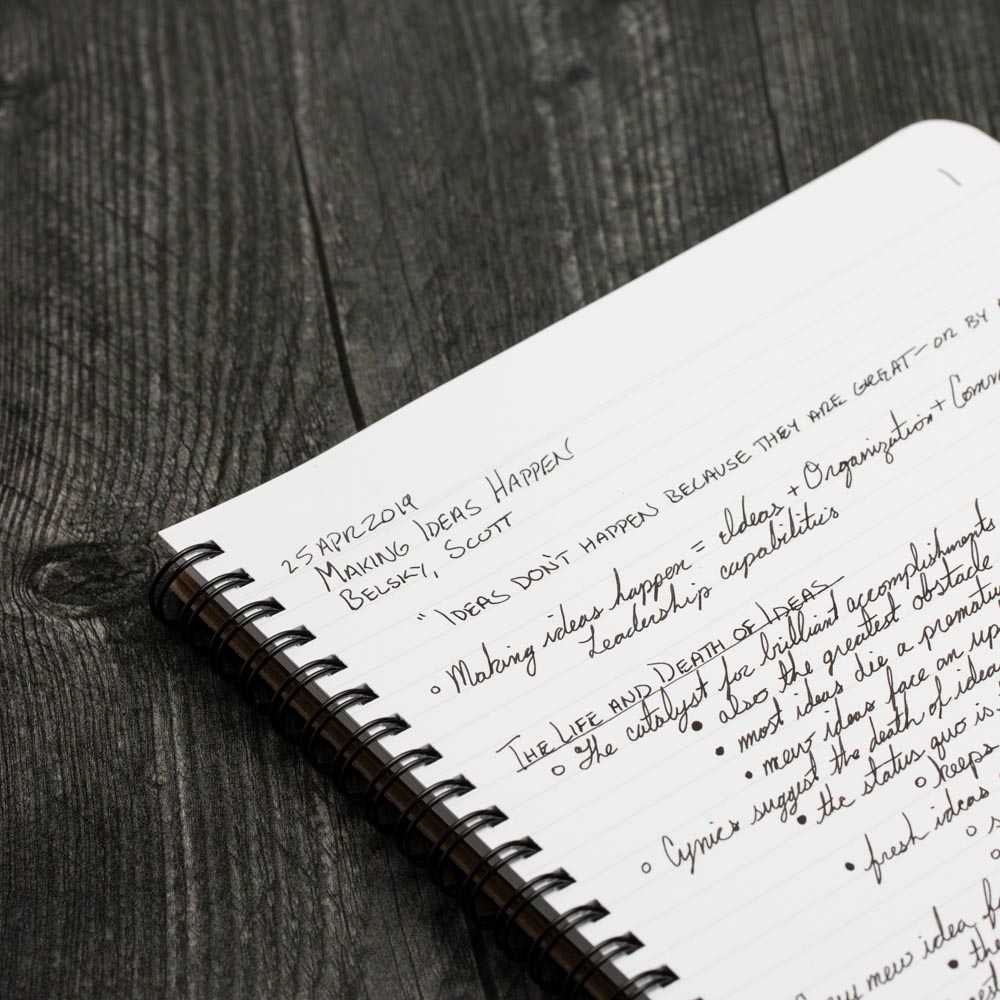 1
25 APR 2019
MAKING IDEAS HAPPEN
BELSKY, SCOTT
"IDEAS DON'T HAPPEN BECAUSE THEY ARE GREAT—OR BY
Making ideas happen = Ideas + Organization +
Leadership capabilities
THE LIFE AND DEATH OF IDEAS
The catalyst for brilliant accomplishments
also the greatest obstacle
most ideas die a
new ideas face an
Cynics suggest the death of
the status quo is
keeps
fresh ideas
new idea